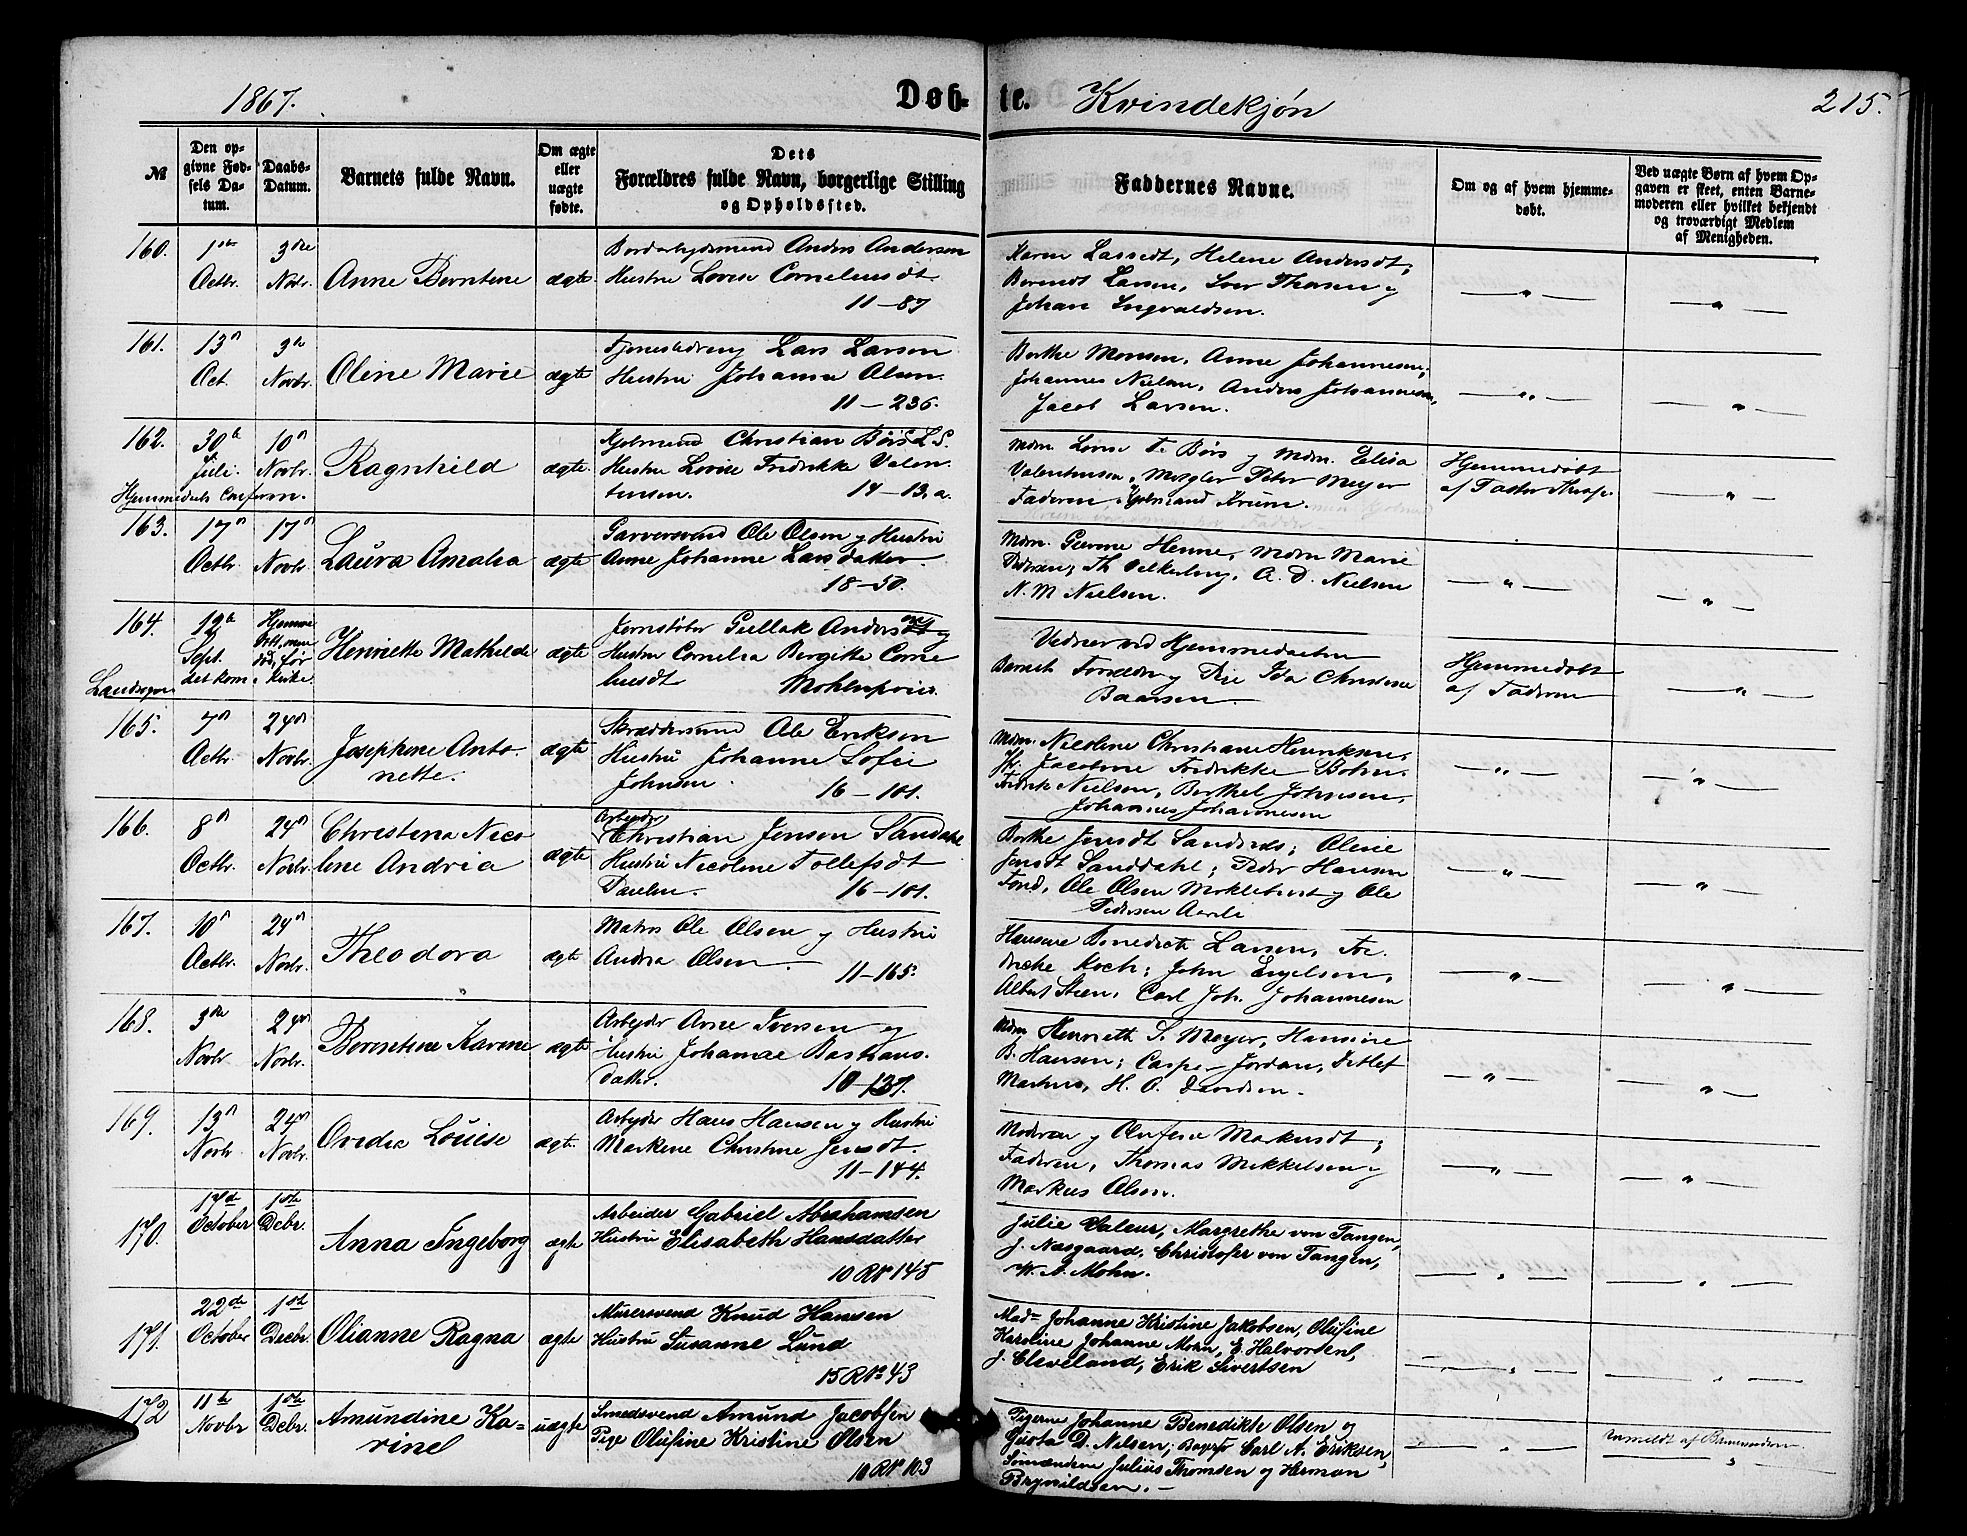 1867.
Døb-
te.
Kvindekjøn
215.
№
Den op-
givne Fød-
sels Da-
tum.
Daabs-
Datum.
Barnets fulde Navn.
Om ægte
eller
uægte
fødte.
Dets
Forældres fulde Navn, borgerlige Stilling
og Opholdssted.
Faddernes Navne.
Om og af hvem hjemme-
døbt.
Ved uægte Børn af hvem Op-
gaven er skeet, enten Barne-
moderen eller hvilket bekjendt
og troværdigt Medlem
af Menigheden.
160.
1ste
Octbr.
3die
Novbr.
Anne Berntine
ægte
Anders Andersen
Hustru Lovise Corneliusdt.
11-87
Karen Larsdt, Helene Andersdt,
Berendt Larsen, Iver Thosen og
Johan Ingvaldsen.
161.
13de
Oct.
3die
Novbr.
Oline Marie
ægte
Lars Larsen
Hustru Johanne Olsen.
11-236.
Berthe Monsen, Anne Johannesen,
Johannes Nielsen, Anders Johannesen,
Jacob Larsen.
162.
30te
Juli.
10de
Novbr.
Ragnhild
ægte.
Christian Børs L.S.
Hustru Lovise Fredrikke Valen-
tinsen. 14-13.a.
Mdm. Lovise T. Børs og Mdm. Elisa
Valentinsen, Mægler Peter Meyer
Faderen, Krum.
Hjemmedøbt
af Pastor
Hjemmedaab Conferm.
163.
17de
Octbr.
17de
Novbr.
Laura Amalia
ægte
Garversvend Ole Olsen og Hustru
Anne Johanne Larsdatter.
18-50.
Mdm. Henne, Mdm Marie
Pedersen, Th A. D. Nielsen
N. M Nielsen.
164.
12te
Sept.
Henriette Mathilde
ægte
Jernstøber Gullak Andersen og
Hustru Cornelia Bergitte Corne
liusdt Mohlenpriis.
Landsogn
Ved Hjemmedaaben
Barnets Forældre og Pige Ida Christine
Baarsen.
Hjemmedøbt
af Faderen
165.
7de
Octbr.
24de
Novbr.
Josephine Anto-
nette.
ægte
Skræddersvend Ole Eriksen
Hustru Johanne Sofie
Johnsen. 16-101.
Mdm. Nicoline Christiane Henriksen,
Jfr. Jacobine Fredrikke Bohn.
Fredrik Nielsen, Berthel Johnsen,
Johannes Johannesen
166.
8de
Octbr.
24de
Novbr.
Christina Nico
line Andria
ægte
Arbeider
Christian Jensen Sandahl
Hustru Nicoline Tollefsdt
Paulen. 16-101.
Berthe Jensdt Oline
Jensdt Sanddahl; Peder Hansen
Ole Olsen Myklebust og Ole
Pedersen
167.
10de
Octbr.
24de
Novbr.
Theodora
ægte
Matros Ole Olsen og Hustru
Andrea Olsen
11-165.
Hansine Benedicte Larsen, Fre-
drikke Koch; John Engelsen,
Albert Steen, Carl Joh. Johannesen
168.
3die
Novbr
24de
Novbr.
Berentine Karine
ægte
Arbeider Arne Iversen og
Hustru Johanne Bastians-
datter. 10-137.
Mdm Henrieth S. Meyer, Hansine
B. Hansen; Casper Jordan, Detlef
Martins, H. O. Davidsen.
169.
13de
Novbr
24de
Novbr.
Ovidia Louise
ægte.
Arbeider Hans Hansen og Hustru
Markine Christine Jensdt.
11-144.
Moderen og Olufine Markusdt;
Faderen, Thomas Mikkelsen og
Markus Olsen.
170.
17de
October
1ste
Decbr.
Anna Ingeborg
ægte
Arbeider Gabriel Abrahamsen
Hustru Elisabeth Hansdatter
10 R№ 145
Julie Valeur, Margrethe von Tangen,
J. Næsgaard, Christofer von Tangen,
W. A. Mohn.
171.
22de
October
1ste
Decbr.
Olianne Ragna
ægte
Murersvend Knud Hansen
Hustru Susanne Lund
15 R№ 43
Mad. Johanne Kristine Jakobsen, Olufine
Karoline Johanne Mohn, E. Halvorsen,
J. Cleveland, Erik Sivertsen
172
11te
Novbr
1ste
Decbr.
Amundine Ka-
rine
uægte
Smedsvend Amund Jacobsen
Pige Olufine Kristine Olsen
10 R№ 103
Pigerne Johanne Benedikte Olsen og
Gusta D. Nilsen; Carl A. Eriksen,
Sømændene Julius Thomsen og Herman
Brynildsen.
Anmeldt af Barnemoderen.